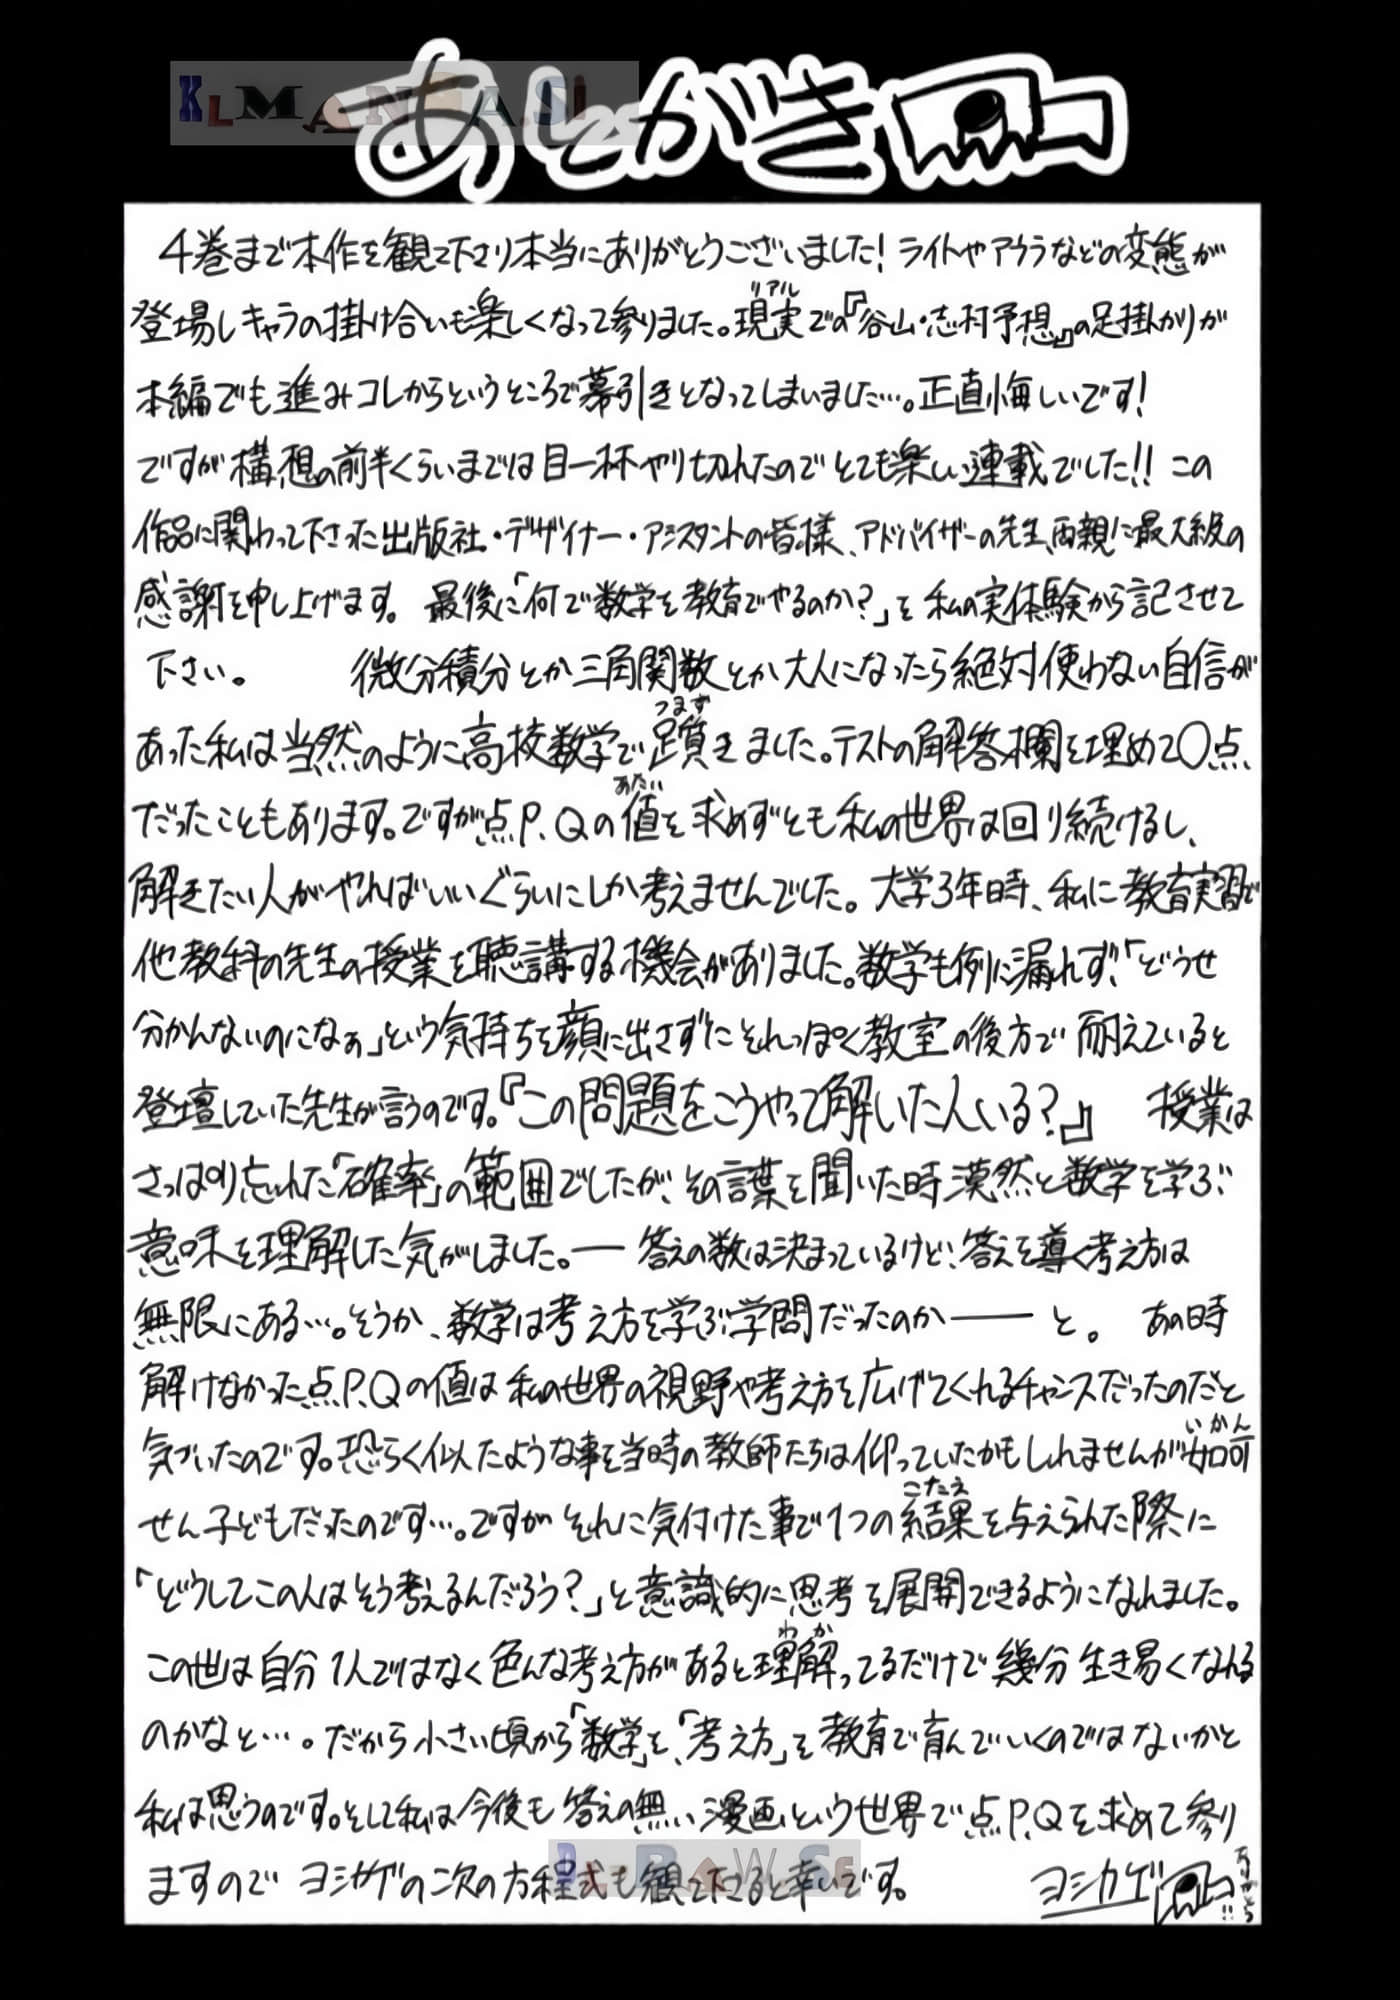 KLMANGA.Si
あとがき
4巻まで本作を観て下さり本当にありがとうございました！ライトやアウラなどの変態が
登場しキャラの掛け合いも楽しくなって参りました。現実での『谷山・志村予想』の足掛かりが
リアル
本編でも進みコレからというところで幕引きとなってしまいました…。正直悔しいです！
ですが構想の前半くらいまでは目一杯やり切れたのでとても楽しい連載でした!!この
作品に関わって下さった出版社・デザイナー・アシスタントの皆様、アドバイザーの先生、両親に最大級の
感謝を申し上げます。最後に「何で数学を教育でやるのか？」を私の実体験から記させて
下さい。　　微分積分とか三角関数とか大人になったら絶対使わない自信が
あった私は当然のように高校数学で足質きました。テストの解答欄を埋めて〇点
つまず
だったこともあります。ですが点P、Qの値を求めずとも私の世界は回り続けるし、
あたい
解きたい人がやればいいぐらいにしか考えませんでした。大学3年時、私に教育実習で
他教科の先生の授業を聴講する機会がありました。数学も例に漏れず、「どうせ
分かんないのになぁ」という気持ちを顔に出さずにそれっぽく教室の後方で耐えていると
登壇していた先生が言うのです。『この問題をこうやって解いた人いる？』　授業は
さっぱり忘れた「確率」の範囲でしたが、その言葉を聞いた時漠然と数学を学ぶ
意味を理解した気がしました。ー答えの数は決まっているけど、答えを導く考え方は
無限にある…。そうか、数学は考え方を学ぶ学問だったのか――と。　あの時
解けなかった点P、Qの値は私の世界の視野や考え方を広げてくれるチャンスだったのだと
気づいたのです。恐らく似たような事を当時の教師たちは仰っていたかもしれませんが如何
いかん
せん子どもだったのです…。ですがそれに気付けた事で1つの結果を与えられた際に
こたえ
「どうしてこの人はそう考えるんだろう？」と意識的に思考を展開できるようになれました。
この世は自分1人ではなく色んな考え方があると理解ってるだけで幾分生き易くなれる
わか
のかなと…。だから小さい頃から「数学」を、「考え方」を教育で育んでいくのではないかと
私は思うのです。そして私は今後も答えの無い漫画という世界で点P、Qを求めて参り
ますのでヨシカゲの次の方程式も観て下さると幸いです。
ヨシカゲ
ありがとう!!